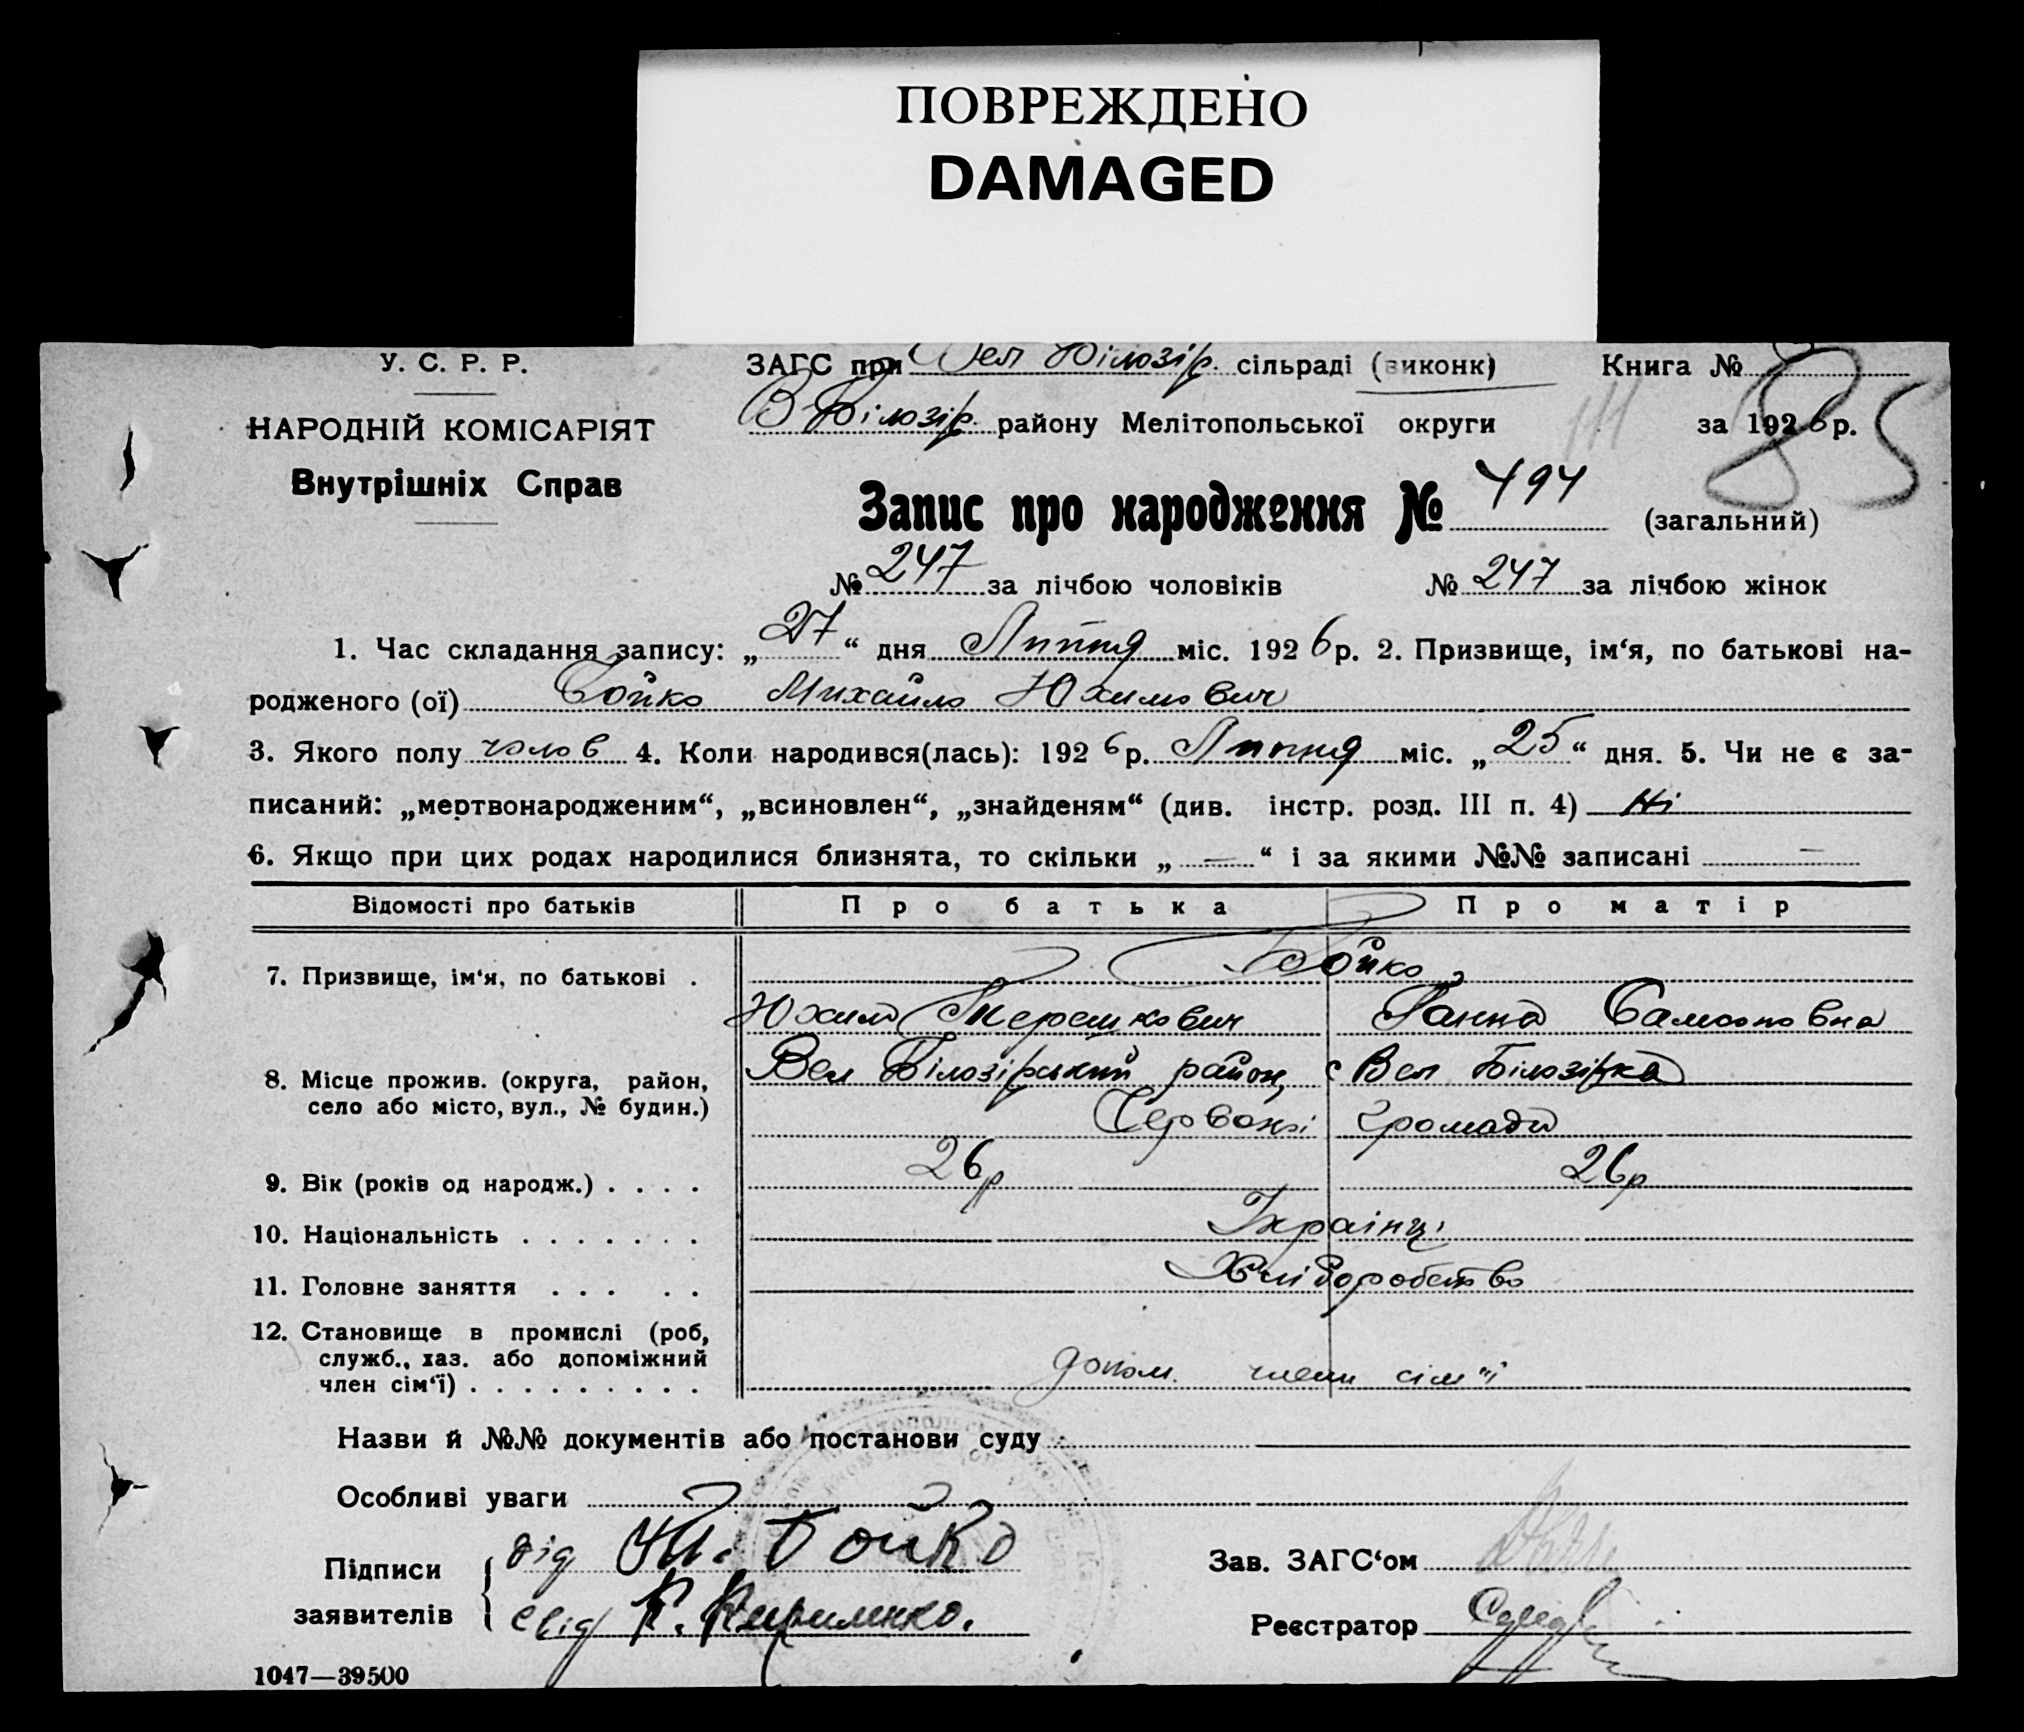 ПОВРЕЖДЕНО
DAMAGED
У. С. Р. Р.
НАРОДНІЙ КОМІСАРІЯТ
Внутрішніх Справ
ЗАГС при Вел Білозір. сільраді (виконк) Книга №
В-Білозір. району Мелітопольської округи за 1926 р.
85
Запис про народження № 494 (загальний)
№ 247 за лічбою чоловіків № 247 за лічбою жінок
1. Час складання запису: „27“ дня Липня міс. 1926 р. 2. Призвище, ім‘я, по батькові на-
родженого (ої) Бойко Михайло Юхимович
3. Якого полу чолов 4. Коли народився(лась): 1926 р. Липня міс. „25“ дня. 5. Чи не є за-
писаний: „мертвонародженим“, „всиновлен“, „знайденям“ (див. інстр. розд. III п. 4) Ні
6. Якщо при цих родах народилися близнята, то скільки „ — “ і за якими №№ записані —
Відомості про батьків Про батька Про матір
7. Призвище, ім‘я, по батькові . Бойко
Юхим Терешкович Ганна Самсоновна
8. Місце прожив. (округа, район, Вел Білозірський район, с Вел Білозірка
село або місто, вул., № будин.) Червоні громади
9. Вік (років од народж.) . . . . 26р 26р
10. Національність . . . . . . . Українці
11. Головне заняття . . . . . Хліборобство
12. Становище в промислі (роб,
служб., хаз. або допоміжний
член сім‘ї) . . . . . . . . . допом. члени сім"ї
Назви й №№ документів або постанови суду
Особливі уваги
Підписи
заявителів
дід Бойко
свід К. Кириленко.
Зав. ЗАГС‘ом
Реєстратор
1047—39500